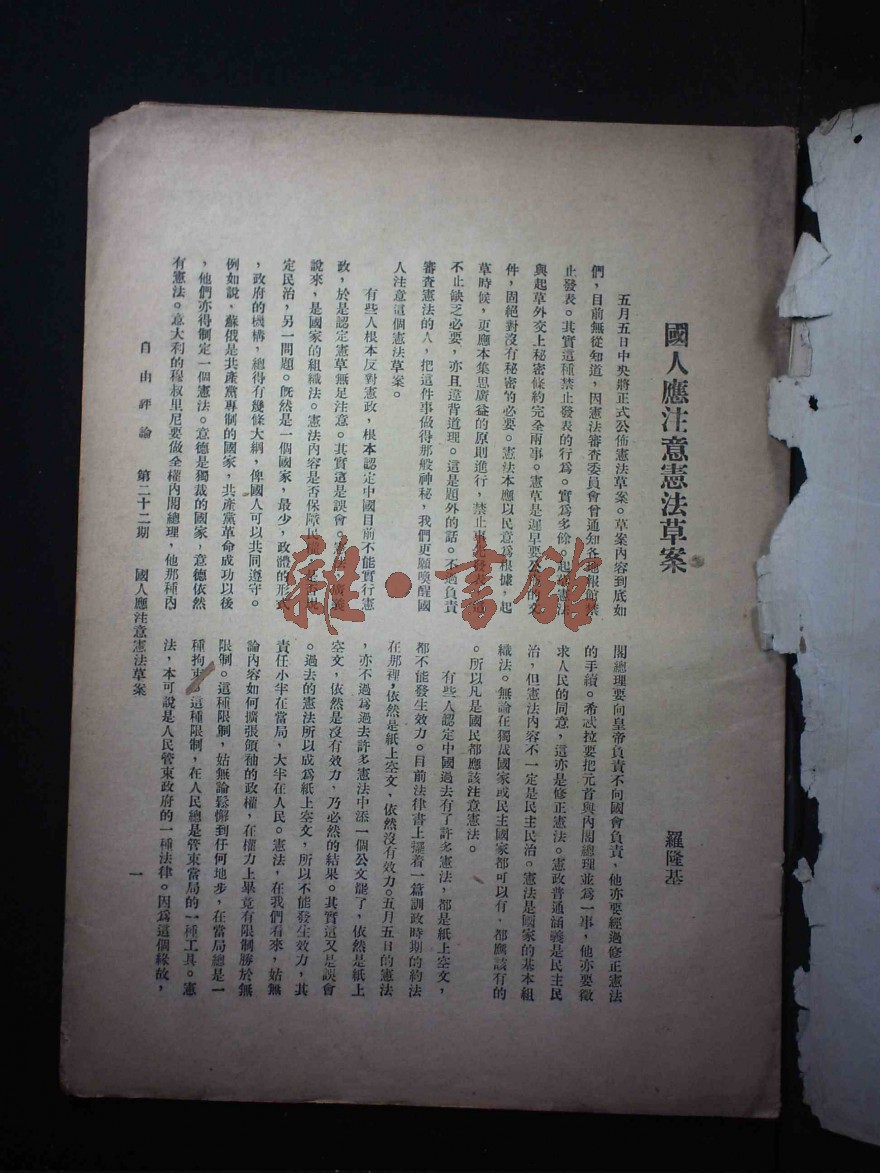 國人應注意憲法草案
羅隆基
五月五日中央將正式公佈憲法草案。草案內容到底如
們,目前無從知道,因憲法審查委員會曾通知各地報館禁
止發表。其實這種禁止發表的行爲。實爲多餘。起草憲法
與起草外交上秘密條約完全兩事。憲草是遲早要公佈的文
件,固絕對沒有秘密的必要。憲法本應以民意爲根據,起
草時候,更應本集思廣益的原則進行,禁止事先發表
不止缺乏必要,亦且違背道理。這是題外的話。不過負責
審查憲法的人,把這件事做得那般神秘,我們更願喚醒國
人注意這個憲法草案。
有些人根本反對憲政,根本認定中國目前不能實行憲
政,於是認定憲草無足注意。其實這是誤會。憲法,廣義
說來,是國家的組織法。憲法內容是否保障民權,是否規
定民治,另一問題。既然是一個國家,最少,政體的形式
,政府的機構,總得有幾條大綱,俾國人可以共同遵守。
例如說,蘇俄是共產黨專制的國家,共產黨革命成功以後
,他們亦得制定一個憲法。意德是獨裁的國家,意德依然
有憲法。意大利的穆叔里尼要做全權內閣總理,他那種內
閣總理要向皇帝負責不向國會負責,他亦要經過修正憲法
的手續。希忒拉要把元首與內閣總理並爲一事,他亦要徵
求人民的同意,這亦是修正憲法。憲政普通涵義是民主民
治,但憲法內容不一定是民主民治。憲法是國家的基本組
織法。無論在獨裁國家或民主國家都可以有,都應該有的
。所以凡是國民都應該注意憲法。
有些人認定中國過去有了許多憲法,都是紙上空文,
都不能發生效力。目前法律書上擺着一篇訓政時期的約法
在那裡,依然是紙上空文,依然沒有效力。五月五日的憲法
,亦不過爲過去許多憲法中添一個公文罷了,依然是紙上
空文,依然是沒有效力,乃必然的結果。其實這又是誤會
。過去的憲法所以成爲紙上空文,所以不能發生效力,其
責任小半在當局,大半在人民。憲法,在我們看來,姑無
論內容如何擴張領袖的政權,在權力上畢竟有限制勝於無
限制。這種限制,姑無論鬆懈到任何地步,在當局總是一
種拘束。這種限制,在人民總是管束當局的一種工具。憲
法,本可說是人民管束政府的一種法律。因爲這個緣故,
自由評論 第二十二期 國人應注意憲法草案 一
雜·書館